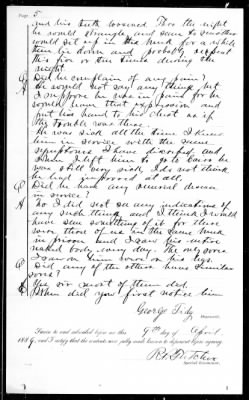 Page 5
and his teeth loosened. Thro the night
he would strangle and seem to smother
would set up in his bunk for a while
then lie down and probably repeat
this five or ten times during the
night.
Q Did he complain of any pain?
A He would not say any thing but
I suppose he was in pain for he
would have that expression and
put his hand to his chest as if
the trouble was there.
He was sick all the time I knew
him in service with the same
symptoms I have described and
when I left him to go to
was still very sick I do not think
he laid in good at all.
Q Did he have any venereal disease
in service?
A No I did not see any indications of
any such thing and I think I would
have seen something of it for there
were three of us in the same bunk
in prison and I saw his entire
naked body every day. The only sores
I saw on him were on his legs.
Q Did any of the others have similar
sores?
A Yes sir most of them did.
Q When did you first notice him
George Tidy
Deponent.
Sworn to and subscribed before me this 9th day of April,
1889, and I certify that the contents were fully made known to deponent before signing.
Special Examiner.